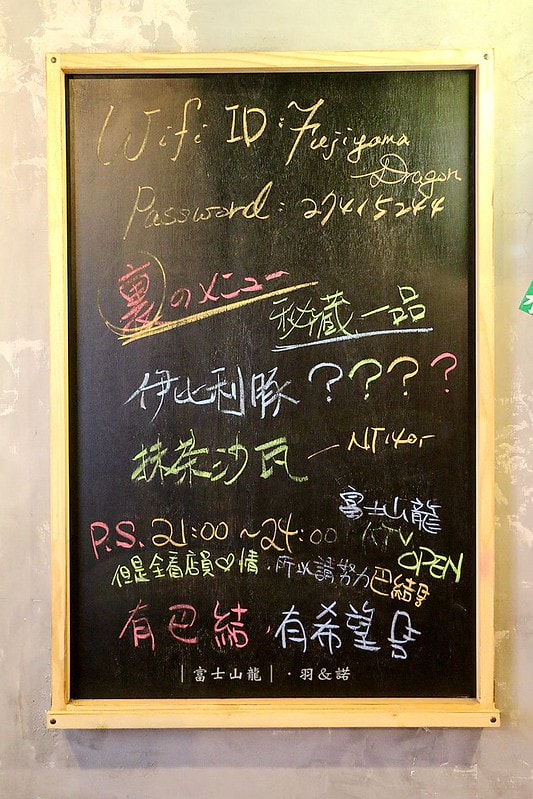 Wifi ID: Fujiyama
Dragon
Password: 27415244
裏のメニュー
秘蔵一品
伊比利豚????
抹茶沙瓦 — NT140
富士山龍
P.S. 21:00~24:00 KTV
OPEN
但是全看店員♡情,所以請努力巴結
有巴結,有希望
|富士山龍|·羽&諾